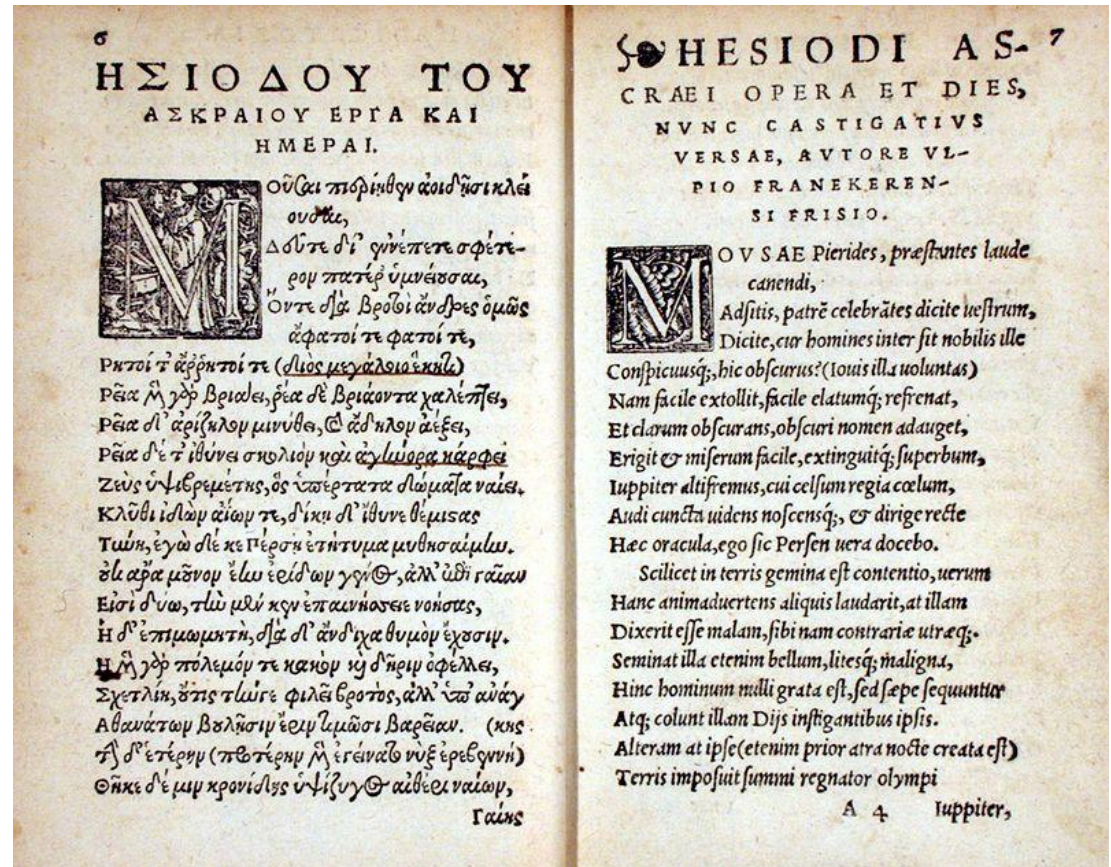 6
ΗΣΙΟΔΟΥ ΤΟΥ
ΑΣΚΡΑΙΟΥ ΕΡΓΑ ΚΑΙ
ΗΜΕΡΑΙ.
Μοῦσαι πιερίηθεν ἀοιδῇσι κλεί
ουσαι,
Δεῦτε δι' ἐννέπετε σφέτε-
ρον πατέρ' ὑμνείουσαι,
Ὅντε διὰ βροτοὶ ἄνδρες ὁμῶς
ἄφατοί τε φατοί τε,
Ρητοί τ' ἄῤῥητοί τε (διὸς μεγάλοιο ἕκητι)
Ρεῖα μὲν γὰρ βριάει, ῥέα δὲ βριάοντα χαλέπτει,
Ρεῖα δ' ἀρίζηλον μινύθει, καὶ ἄδηλον ἀέξει,
Ρεῖα δέ τ' ἰθύνει σκολιὸν καὶ ἀγήνορα κάρφει
Ζεὺς ὑψιβρεμέτης, ὃς ὑπέρτατα δώματα ναίει.
Κλῦθι ἰδὼν ἀΐων τε, δίκῃ δ' ἴθυνε θέμιστας
Τύνη, ἐγὼ δέ κε Πέρσῃ ἐτήτυμα μυθησαίμην.
οὐκ ἄρα μοῦνον ἔην ἐρίδων γένος, ἀλλ' ἐπὶ γαῖαν
Εἰσὶ δύω, τὴν μέν κεν ἐπαινήσειε νοήσας,
Ἡ δ' ἐπιμωμητὴ, διὰ δ' ἄνδιχα θυμὸν ἔχουσιν.
Ἡ μὲν γὰρ πόλεμόν τε κακὸν καὶ δῆριν ὀφέλλει,
Σχετλίη, οὔτις τήνγε φιλεῖ βροτὸς, ἀλλ' ὑπ' ἀνάγ
Αθανάτων βουλῇσιν ἔριν τιμῶσι βαρεῖαν. (κης
τὴν δ' ἑτέρην (προτέρην μὲν ἐγείνατο νὺξ ἐρεβεννή)
Θῆκε δέ μιν κρονίδης ὑψίζυγος αἰθέρι ναίων,
Γαίης
7
HESIODI AS-
CRAEI OPERA ET DIES,
NVNC CASTIGATIVS
VERSAE, AVTORE VL-
PIO FRANEKEREN-
SI FRISIO.
MOVSAE Pierides, præstantes laude
canendi,
Adsitis, patrē celebrātes dicite uestrum,
Dicite, cur homines inter sit nobilis ille
Conspicuusq;, hic obscurus? (Iouis illa uoluntas)
Nam facile extollit, facile elatumq; refrenat,
Et clarum obscurans, obscuri nomen adauget,
Erigit & miserum facile, extinguitq; superbum,
Iuppiter altifremus, cui celsum regia cœlum,
Audi cuncta uidens noscensq;, & dirige recte
Hæc oracula, ego sic Persen uera docebo.
Scilicet in terris gemina est contentio, uerum
Hanc animaduertens aliquis laudarit, at illam
Dixerit esse malam, sibi nam contrariæ utræq;.
Seminat illa etenim bellum, litesq; maligna,
Hinc hominum nulli grata est, sed sæpe sequuntur
Atq; colunt illam Dijs instigantibus ipsis.
Alteram at ipse (etenim prior atra nocte creata est)
Terris imposuit summi regnator olympi
A 4 Iuppiter,